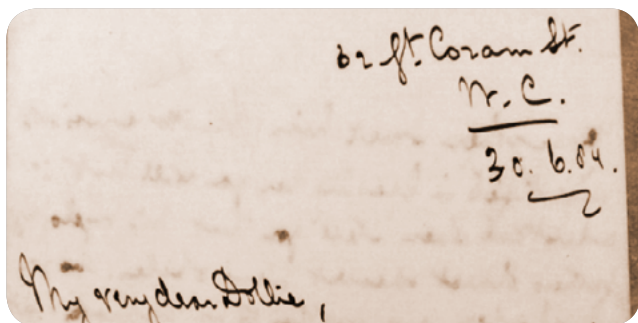 62 Gt. Coram St.
W. C.
30. 6. 84.
My very dear Dollie,